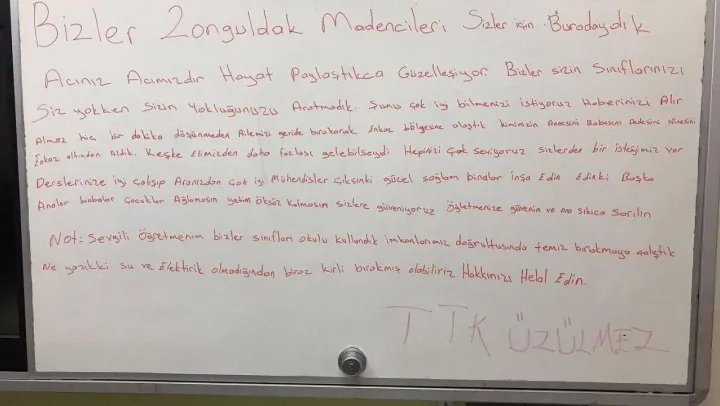 Bizler Zonguldak Madencileri Sizler için Buradaydık
Acınız Acımızdır Hayat Paylaştıkca Güzelleşiyor. Bizler sizin Sınıflarınızı
Siz yokken Sizin Yokluğunuzu Aratmadık. Şunu çok iyi bilmenizi istiyoruz Haberinizi Alır
Almaz hiç bir dakika düşünmeden Ailemizi geride bırakarak Enkaz bölgesine ulaştık kimimizin Annesini Babasını Dedesini Ninesini
Enkaz altından Aldık. Keşke Elimizden daha fazlası gelebilseydi Hepinizi Çok seviyoruz sizlerden bir isteğimiz var
Derslerinize iyi çalışıp Aranızdan Çok iyi Mühendisler Çıksınki güzel sağlam binalar inşa Edin Edinki Başka
Analar babalar çocuklar Ağlamasın yetim Öksüz kalmasın sizlere güveniyoruz Öğretmenize güvenin ve ona sıkıca Sarılın
Not: Sevgili Öğretmenim bizler sınıfları okulu kullandık imkanlarımız doğrultusunda temiz bırakmaya çalıştık
Ne yazıkki su ve Elektirik olmadığından biraz kirli bırakmış olabiliriz Hakkınızı Helal Edin.
TTK ÜZÜLMEZ